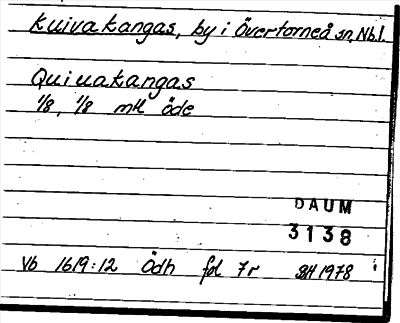 Kuivakangas, by i Övertorneå sn, Nbl.
Quiuakangas
1/8, 1/8 mtl öde
DAUM
3138
Vb 1619:12 Ödh fol 7r SH 1978